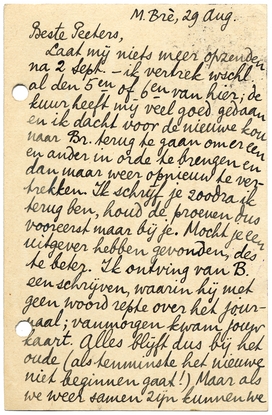 M. Brè, 29 Aug.
Beste Peeters,
Laat mij niets meer opzenden
na 2 Sept. - ik vertrek wschl.
al den 5en of 6en van hier; de
kuur heeft mij veel goed gedaan
en ik dacht voor de nieuwe kou
naar Br. terug te gaan om er een
en ander in orde te brengen en
dan maar weer opnieuw te ver-
trekken. Ik schrijf je zoodra ik
terug ben, houd de proeven dus
vooreerst maar bij je. Mocht je een
uitgever hebben gevonden, des
te beter. Ik ontving van B.
een schrijven, waarin hij met
geen woord repte over het jour-
naal; vanmorgen kwam jouw
kaart. Alles blijft dus bij het
oude (als tenminste het nieuwe
niet beginnen gaat!) Maar als
we weer samen zijn kunnen we